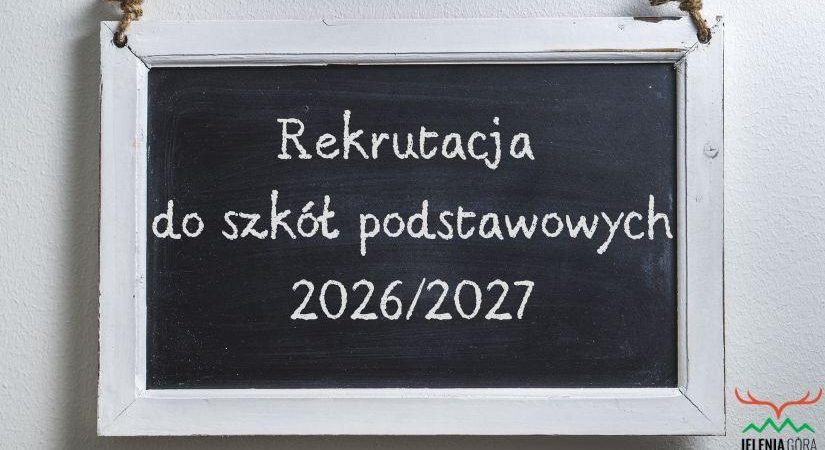 Rekrutacja
do szkół podstawowych
2026/2027
JELENIA GÓRA